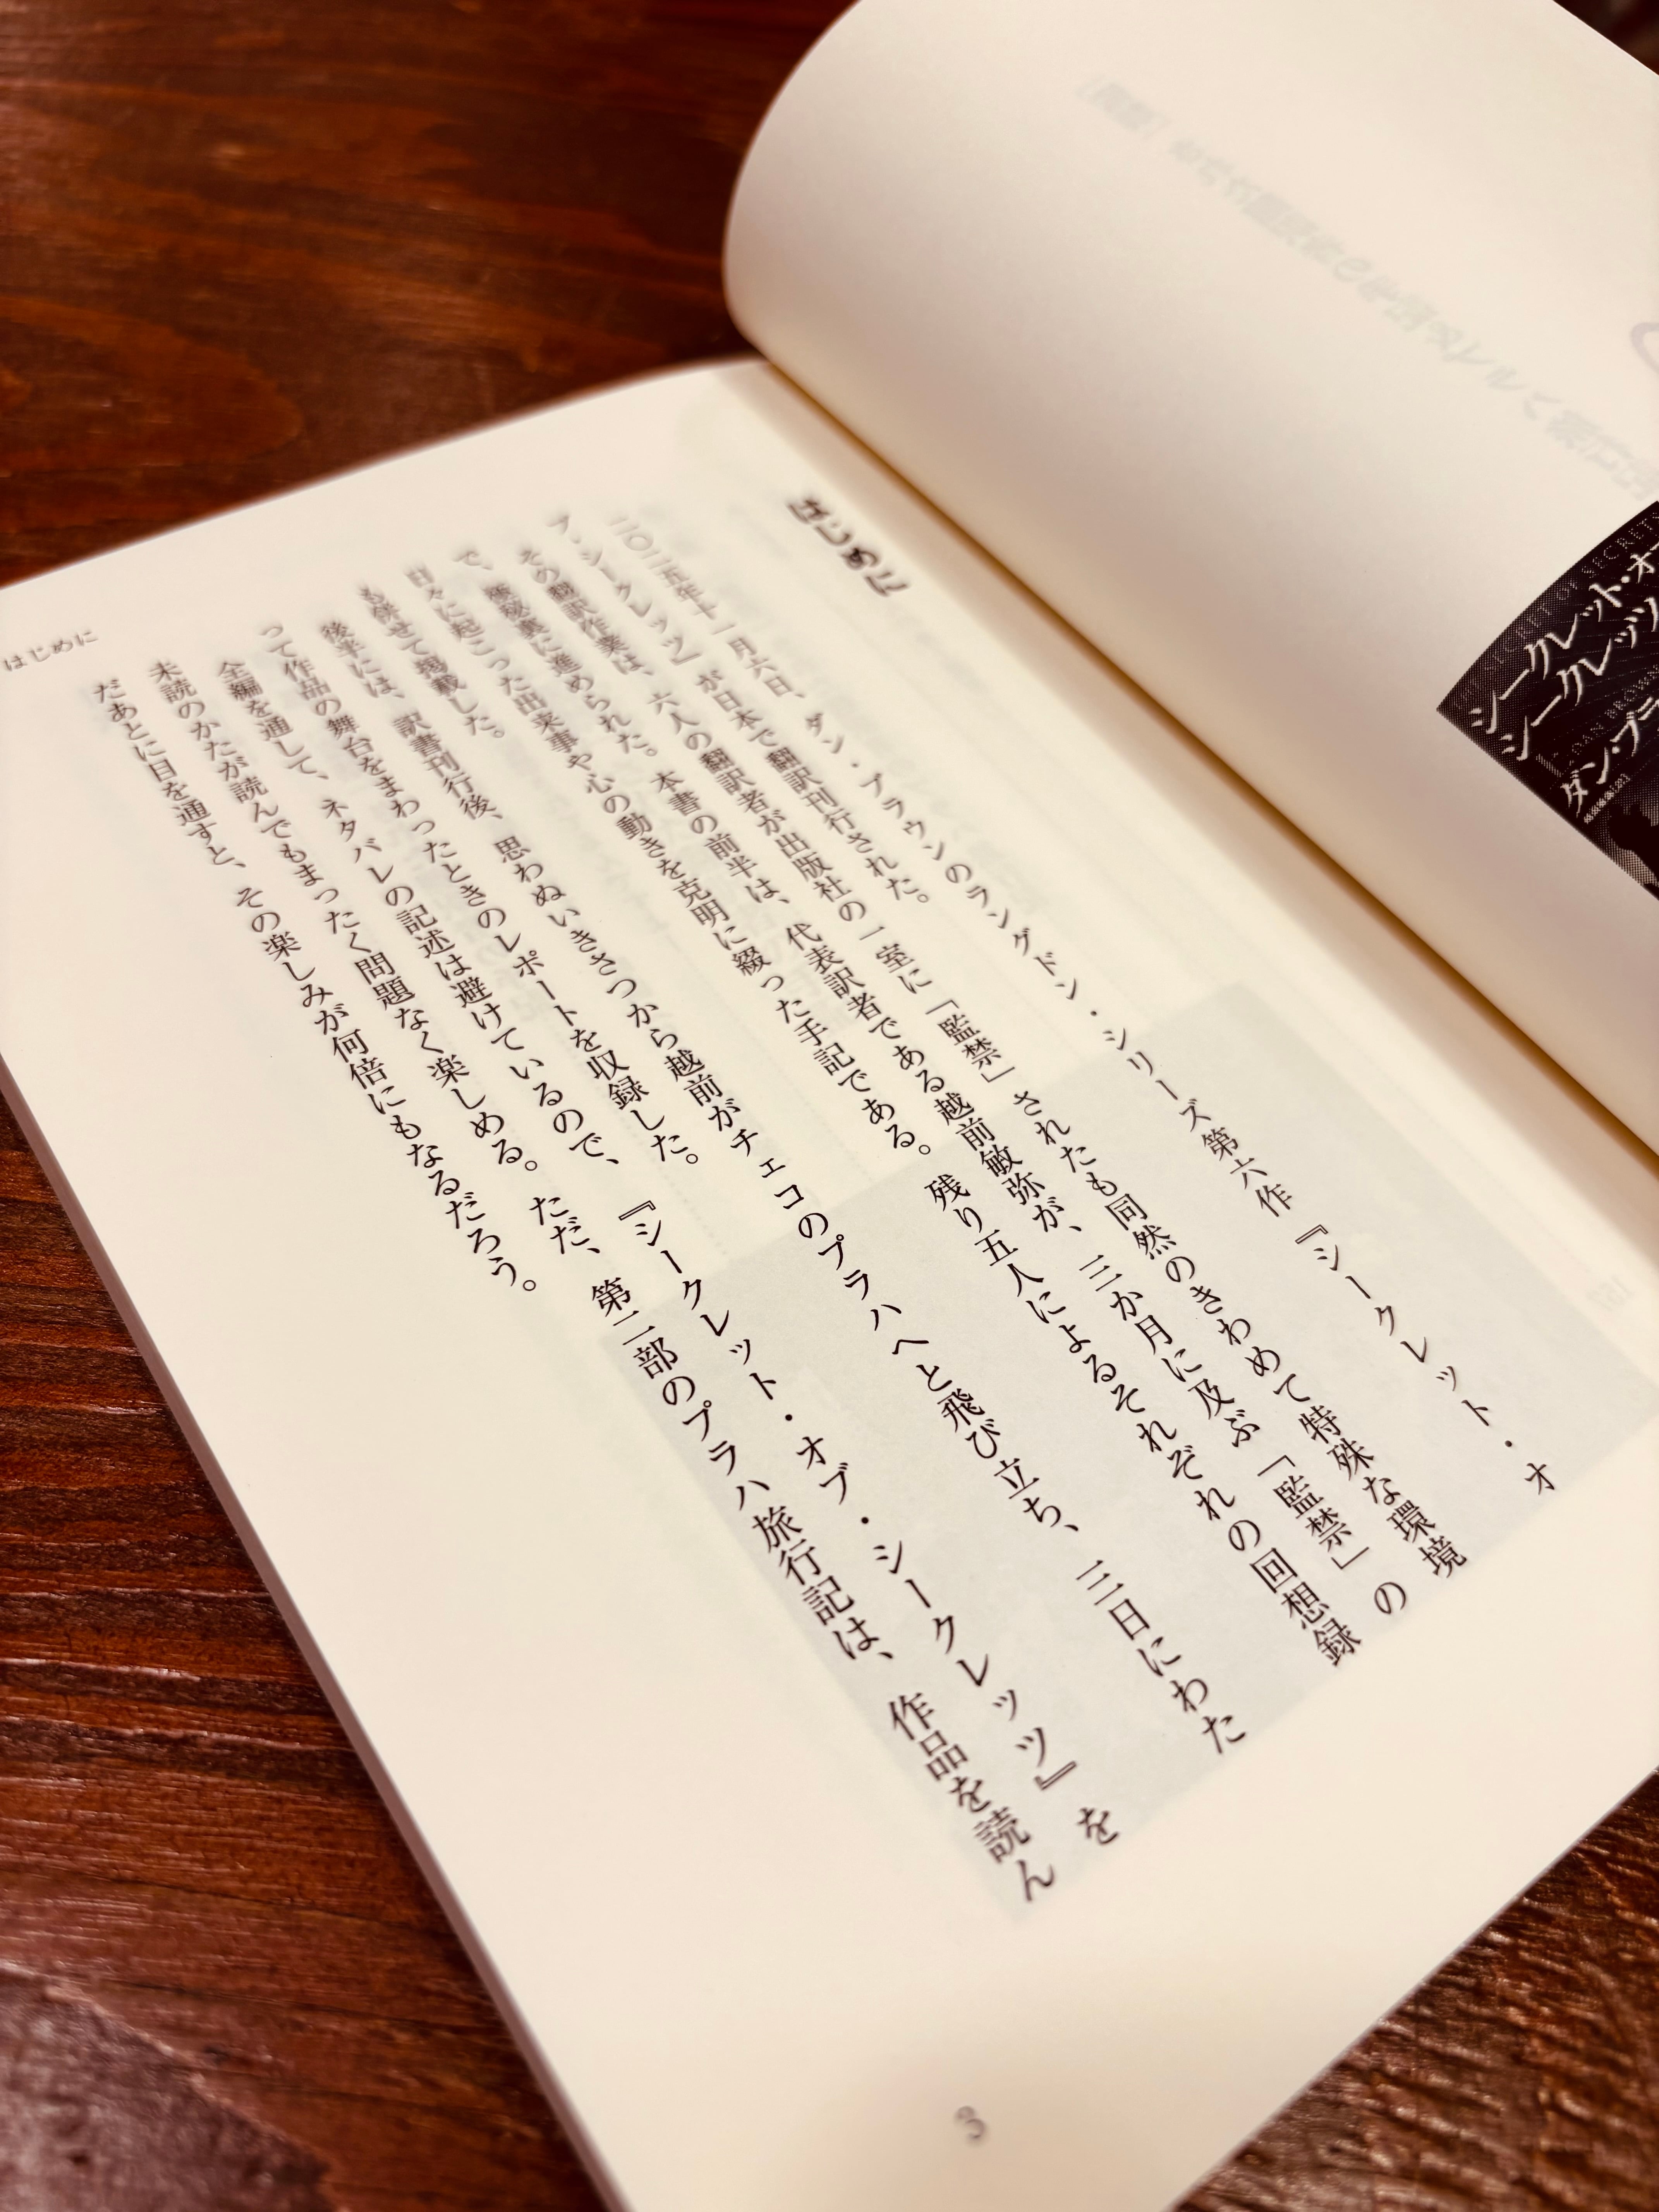 はじめに
二〇二五年十一月六日、ダン・ブラウンのラングドン・シリーズ第六作『シークレット・オ
ブ・シークレッツ』が日本で翻訳刊行された。
その翻訳作業は、六人の翻訳者が出版社の一室に「監禁」されたも同然のきわめて特殊な環境
で、極秘裏に進められた。本書の前半は、代表訳者である越前敏弥が、三か月に及ぶ「監禁」の
日々に起こった出来事や心の動きを克明に綴った手記である。残り五人によるそれぞれの回想録
も併せて掲載した。
後半には、訳書刊行後、思わぬいきさつから越前がチェコのプラハへと飛び立ち、三日にわた
って作品の舞台をまわったときのレポートを収録した。
全編を通して、ネタバレの記述は避けているので、『シークレット・オブ・シークレッツ』を
未読のかたが読んでもまったく問題なく楽しめる。ただ、第二部のプラハ旅行記は、作品を読ん
だあとに目を通すと、その楽しみが何倍にもなるだろう。
はじめに
3
SECRET OF SECRETS
シークレット・オ
シークレッツ
DAN BROWN
ダン・ブラ